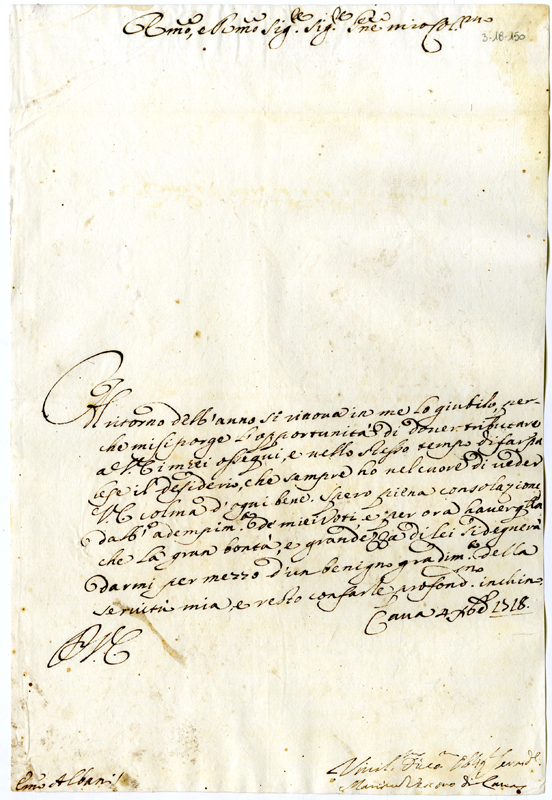 Emo, e Rmo Sigre Sigre Pne mio Colmo
3-18-150
Al ritorno dell'anno si rinova in me lo giubilo, per-
che mi si porge l'opportunità di dover tributare
a V.E. i miei ossequi, e nello stesso tempo di far pa
lese il desiderio, che sempre ho nel cuore di veder
V.E. colma d'ogni bene. Spero piena consolazione
dall' adempimto de miei voti, e per ora haverolla
che la gran bontà, e grandezza di lei si degnerà
darmi per mezzo d'un benigno gradimto della
servitù mia e resto con farle profondmo inchino
Cava 4 Xbre 1718.
D.V.E.
Umilmo Obligmo
Emo Albani
Vescovo di Cava